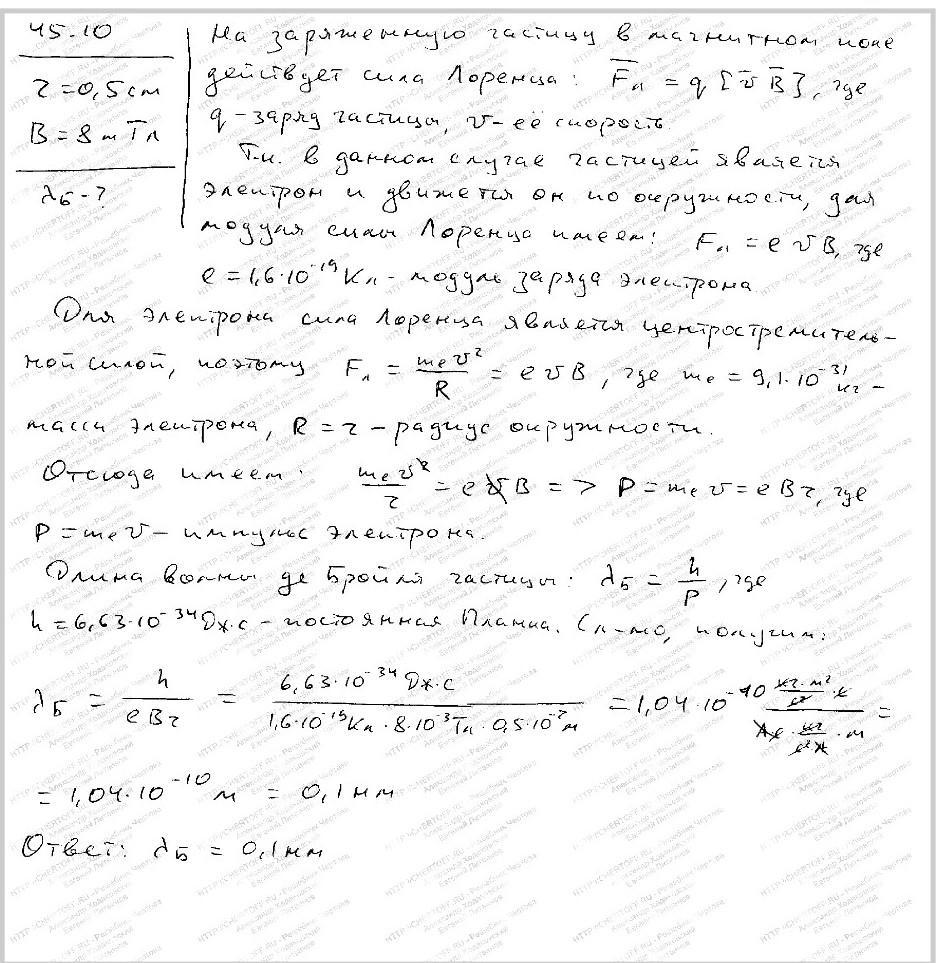 45.10
r = 0,5 cm
B = 8 mТл
λБ - ?
На заряженную частицу в магнитном поле
действует сила Лоренца: F̅л = q [v̅ B̅], где
q - заряд частицы, v - её скорость
Т.к. в данном случае частицей является
электрон и движется он по окружности, для
модуля силы Лоренца имеем: Fл = e v B, где
e = 1,6·10⁻¹⁹ Кл - модуль заряда электрона.
Для электрона сила Лоренца является центростремитель-
ной силой, поэтому Fл = mev²/R = e v B, где me = 9,1·10⁻³¹ кг -
масса электрона, R = r - радиус окружности.
Отсюда имеем: mev²/r = e v B => P = mev = eBr, где
P = mev - импульс электрона.
Длина волны де Бройля частицы: λБ = h/P, где
h = 6,63·10⁻³⁴ Дж·с - постоянная Планка. Сл-но, получим:
λБ = h/eBr = 6,63·10⁻³⁴ Дж·с / 1,6·10⁻¹⁹ Кл · 8·10⁻³ Тл · 0,5·10⁻² м = 1,04·10⁻¹⁰ кг·м²/с² · с / А·с · кг/с²А · м =
= 1,04·10⁻¹⁰ м = 0,1 нм
Ответ: λБ = 0,1 нм